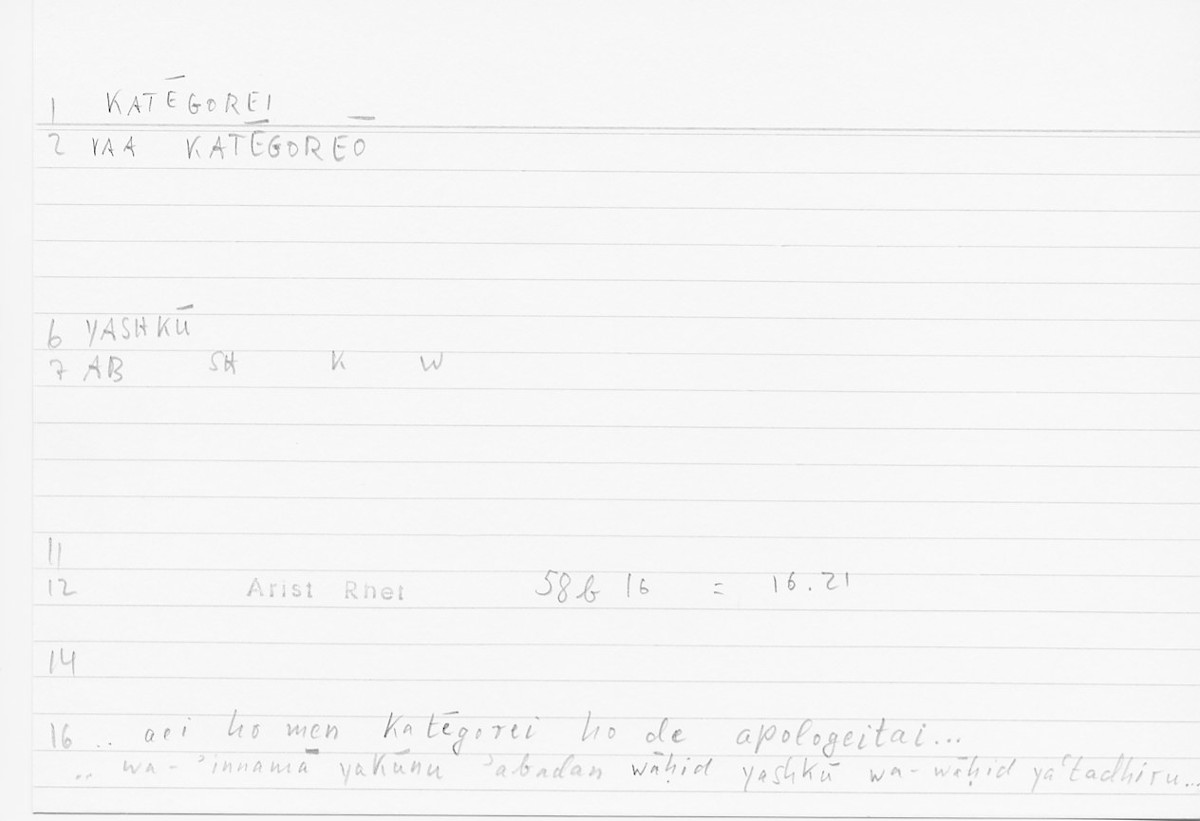 1 KATĒGOREI
2 VAA KATĒGOREŌ
6 YASHKŪ
7 AB SH K W
11
12 Arist Rhet 58b 16 = 16.21
14
16 .. aei ho men katēgorei ho de apologeitai...
.. wa-ʾinnamā yakūnu ʾabadan wāḥid yashkū wa-wāḥid yaʿtadhiru...